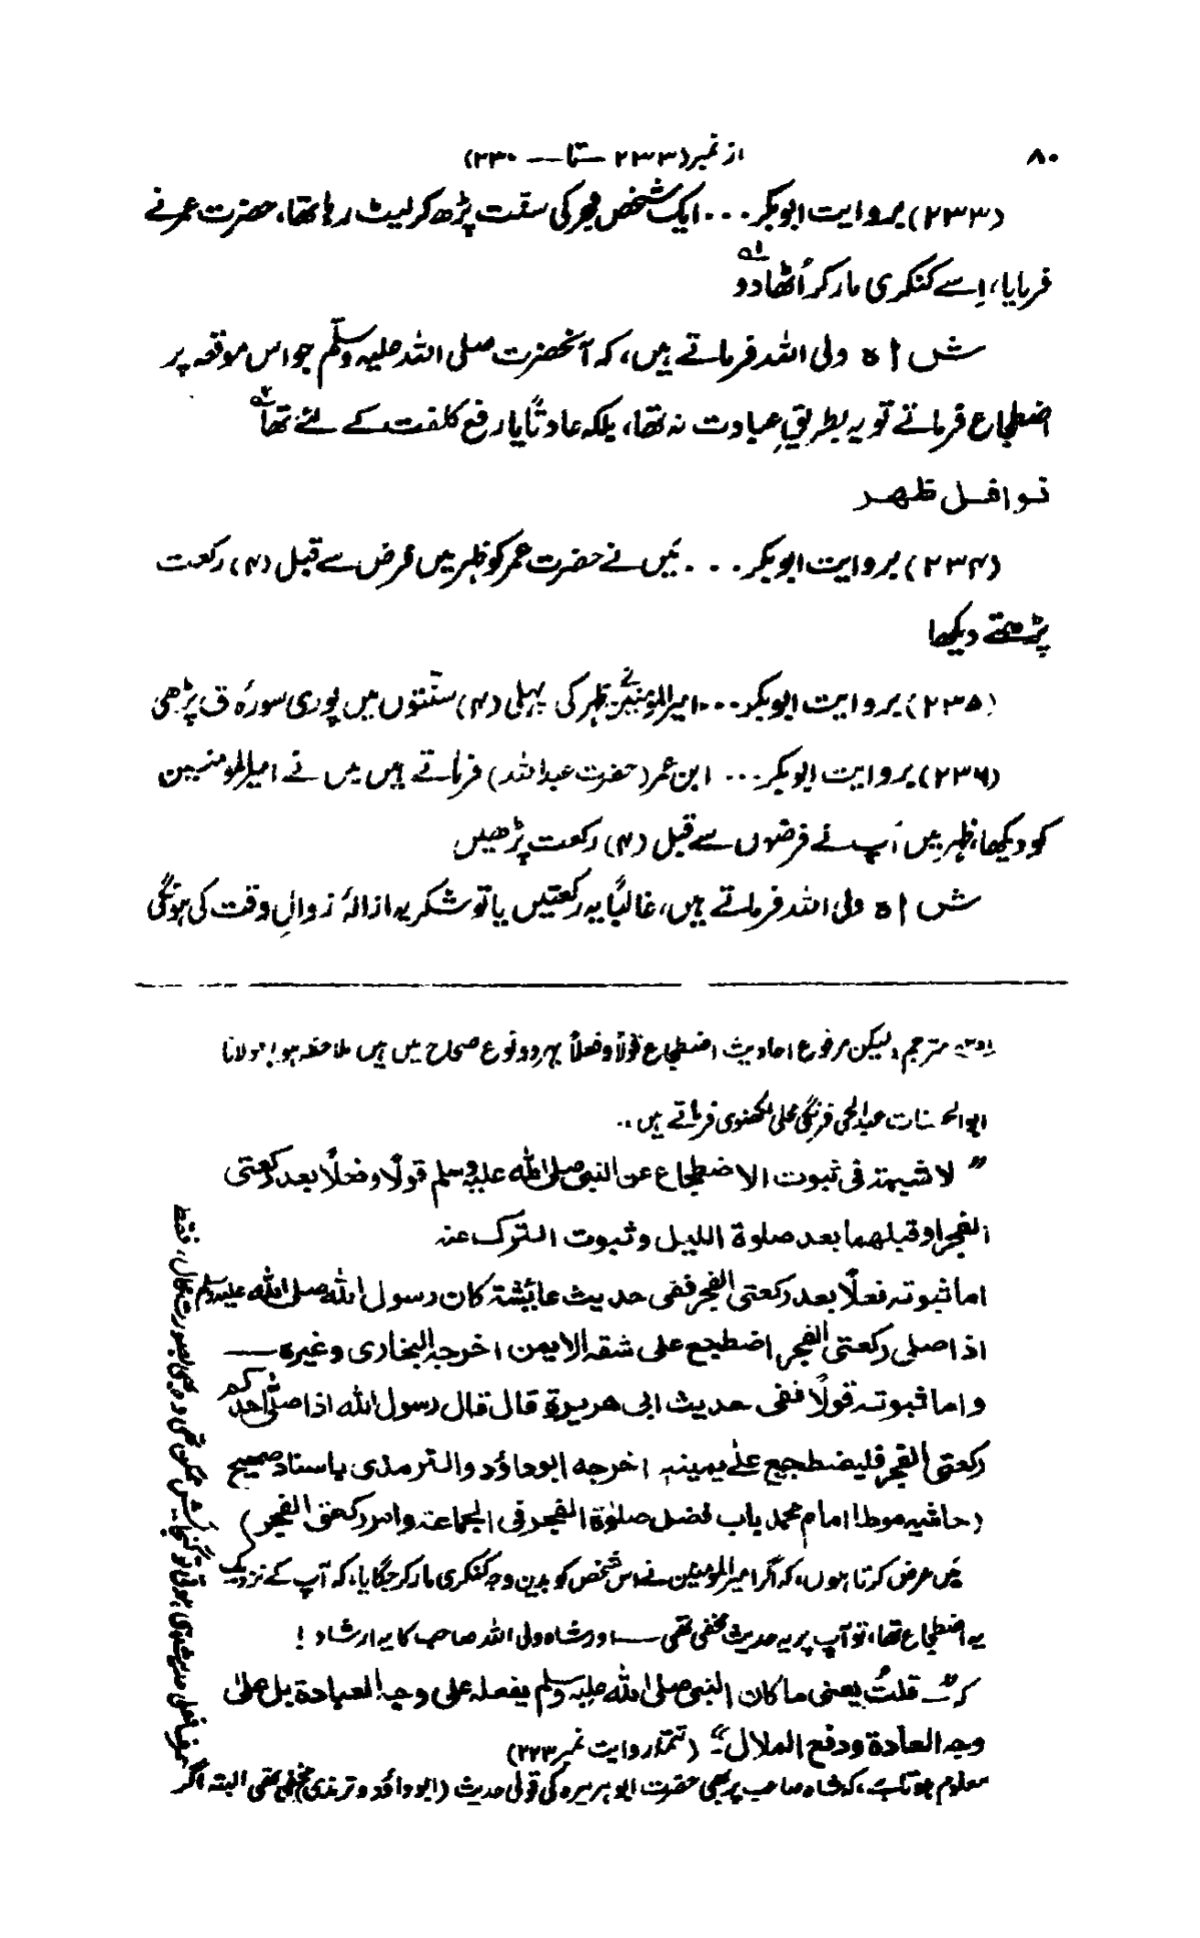 ۸۰
از نمبر (۲۳۳ — تا — ۲۳۰)
(۲۳۳) بروایت ابوبکر... ایک شخص فجر کی سنت پڑھ کر لیٹ رہا تھا، حضرت عمر نے
فرمایا، اِسے کنکری مار کر اُٹھا دو ؎۱
شاہ ولی اللہ فرماتے ہیں، کہ آنحضرت صلی اللہ علیہ وسلّم جو اس موقعہ پر
اضطجاع فرماتے تو یہ بطریقِ عبادت نہ تھا، بلکہ عادتًا یا رفع کلفت کے لئے تھا ؎۲
نوافل ظہر
(۲۳۴) بروایت ابوبکر... مَیں نے حضرت عمر کو ظہر میں فرض سے قبل (۴) رکعت
پڑھتے دیکھا
(۲۳۵) بروایت ابوبکر... امیرالمومنین نے ظہر کی پہلی (۴) سنّتوں میں پوری سورۂ ق پڑھی
(۲۳۶) بروایت ابوبکر... ابن عمر (حضرت عبداللہ) فرماتے ہیں میں نے امیرالمومنین
کو دیکھا، ظہر میں آپ نے فرضوں سے قبل (۴) رکعت پڑھیں
شاہ ولی اللہ فرماتے ہیں، غالبًا یہ رکعتیں یا تو شکریہ ازالۂ زوالِ وقت کی ہونگی
مترجم، لیکن مرفوع احادیث اضطجاع قولًا و فعلًا بہر دو نوع صحاح میں ہیں ملاحظہ ہو! مولانا
ابوالحسنات عبدالحی فرنگی محلی لکھنوی فرماتے ہیں..
"لا شبهة فی ثبوت الاضطجاع عن النبی صلی الله علیه وسلم قولًا و فعلًا بعد رکعتی
الفجر او قبلهما بعد صلوة اللیل و ثبوت الترک عنه
اما ثبوته فعلًا بعد رکعتی الفجر ففی حدیث عائشة کان رسول الله صلی الله علیه وسلم
اذا صلی رکعتی الفجر اضطجع علی شقه الایمن اخرجه البخاری و غیره —
و اما ثبوته قولًا ففی حدیث ابی هریرة قال قال رسول الله اذا صلّی احدکم
رکعتی الفجر فلیضطجع علی یمینه اخرجه ابوداؤد والترمذی باسناد صحیح
(حاشیہ موطا امام محمد باب فضل صلوٰة الفجر فی الجماعة و امر رکعتی الفجر)
مَیں عرض کرتا ہوں، کہ اگر امیرالمومنین نے اس شخص کو بدین وجہ کنکری مار کر جگایا، کہ آپ کے نزدیک
یہ اضطجاع تھا، تو آپ پر یہ حدیث مخفی تھی — اور شاہ ولی اللہ صاحب کا یہ ارشاد!
کہ "قلتُ یعنی ما کان النبی صلی الله علیه وسلم یفعله علی وجه العبادة بل علیٰ
وجه العادة و دفع الملال"۔ (تتمّہ روایت نمبر ۲۲۳)
معلوم ہوتا ہے، کہ شاہ صاحب پر بھی حضرت ابوہریرہ کی قولی حدیث (ابوداؤد و ترمذی) مخفی تھی البتہ اگر
حدیث ہوتی تو گنجائش ممکن تھی وہ بھی بصورت محال، فقط